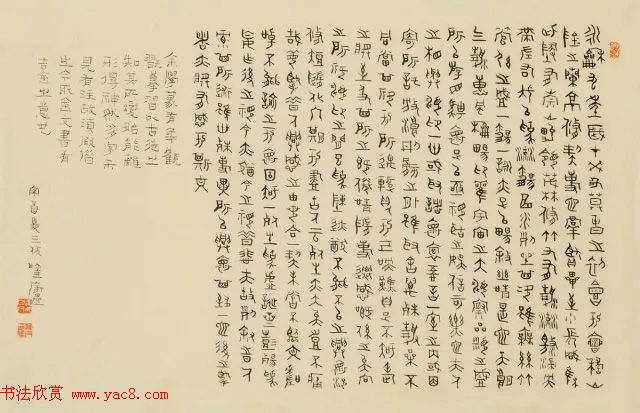 永龢九年歲在癸丑莫春之初會于會稽山
陰之蘭亭修禊事也羣賢畢至少長咸集
此地有崇山峻領茂林修竹又有清流激湍映
帶左右引以為流觴曲水列坐其次雖無絲竹
管弦之盛一觴一詠亦足以暢敘幽情是日也天朗
气清惠風和暢仰觀宇宙之大俯察品類之盛
所以游目騁懷足以極視聽之娛信可樂也夫人
之相與俯仰一世或取諸懷抱悟言一室之內或因
寄所託放浪形骸之外雖取舍萬殊靜躁不
同當其欣於所遇暫得於己快然自足不知老
之將至及其所之既倦情隨事遷感慨係之矣向
之所欣俯仰之間以為陳迹猶不能不以之興懷況
修短隨化終期於盡古人云死生亦大矣豈不痛
哉每攬昔人興感之由若合一契未嘗不臨文嗟
悼不能喻之於懷固知一死生為虛誕齊彭殤為
妄作後之視今亦猶今之視昔悲夫故列敘時人
錄其所述雖世殊事異所以興懷其致一也後之攬
者亦將有感於斯文
余學篆有年觀
书法欣赏
www.yac8.com